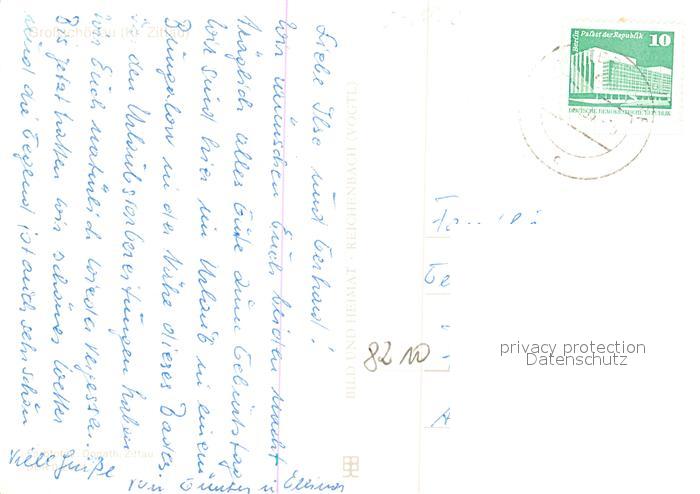 Liebe Ilse und Gerhard!
Wir wünschen Euch beiden nacht
träglich alles Gute zum Geburtstag
Wir sind hier im Urlaub in einem
Bungalow in der Nähe dieses Bades.
In den Urlaubsvorbereitungen haben
wir Euch natürlich wieder vergessen.
Bis jetzt hatten wir schönes Wetter
und die Gegend ist auch sehr schön
Viele Grüße
von Günter u.
Großschönau (Kr. Zittau)
Donath, Zittau
BILD UND HEIMAT · REICHENBACH (VOGTL)
Berlin Palast der Republik 10
DEUTSCHE DEMOKRATISCHE REPUBLIK
Fam
Ge
A
8210
privacy protection
Datenschutz